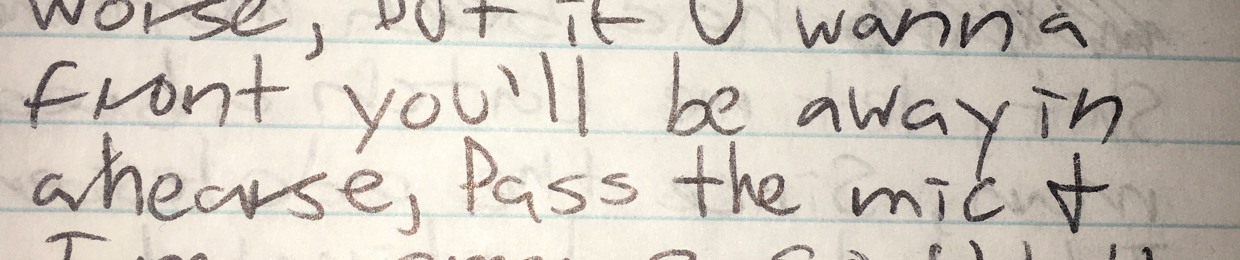 worse, but if U wanna
front you'll be away in
a hearse, Pass the mic +